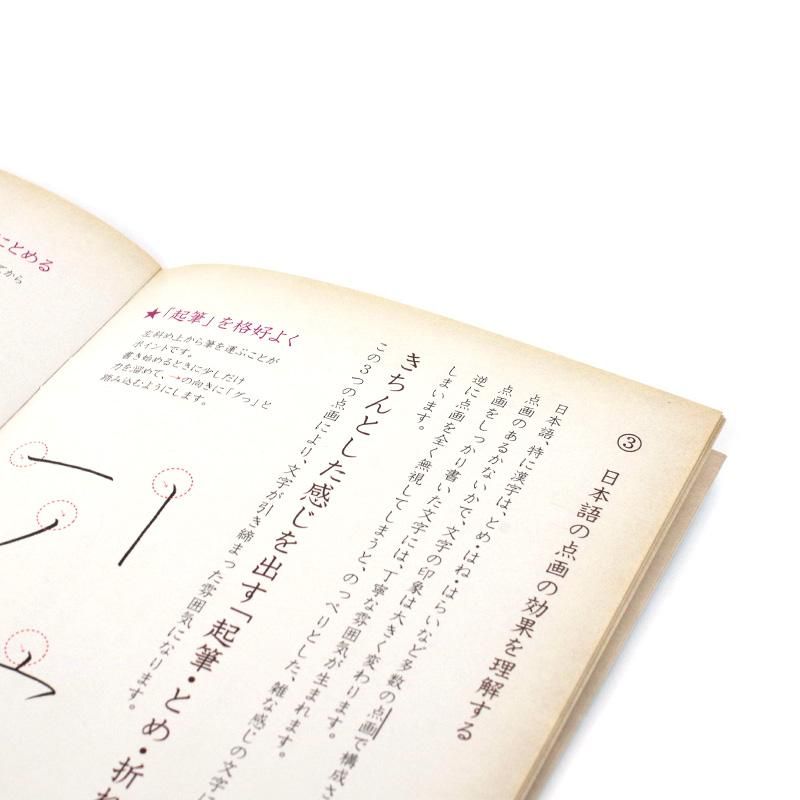 ③ 日本語の点画の効果を理解する
日本語、特に漢字は、とめ・はね・はらいなど多数の点画で構成さ
点画のあるかないかで、文字の印象は大きく変わります。
点画をしっかり書いた文字には、丁寧な雰囲気が生まれます。
逆に点画を全く無視してしまうと、のっぺりとした、雑な感じの文字に
しまいます。
きちんとした感じを出す「起筆・とめ・折れ
この3つの点画により、文字が引き締まった雰囲気になります。
★「起筆」を格好よく
左斜め上から筆を運ぶことが
ポイントです。
書き始めるときに少しだけ
力を溜めて、→の向きに「グっ」と
踏み込むようにします。
にとめる
てから